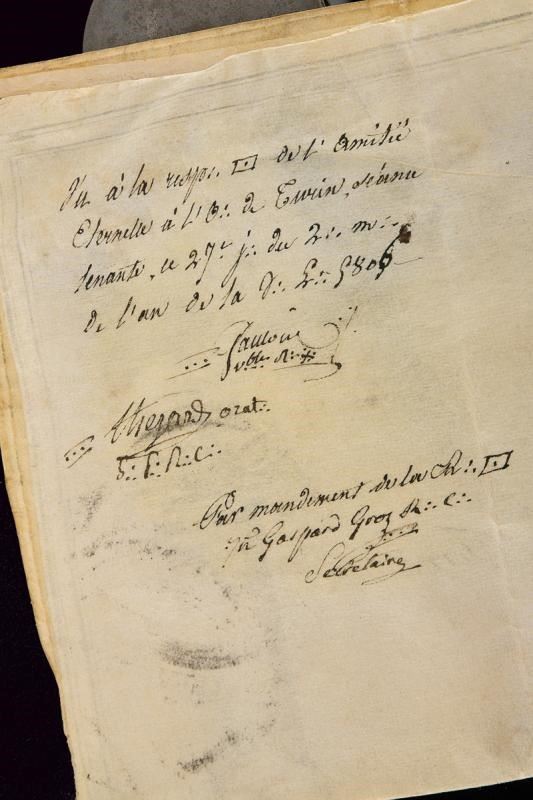 Vu à la resp∴ [⊡] de l'Amitié
Eternelle à l'O∴ de Turin, séance
tenante, ce 27e j∴ du 2∴ m∴
de l'an de la V∴ L∴ 5806
R∴ +∴
orat∴
S∴ P∴ R∴ C∴
Par mandement de la R∴ [⊡]
Gaspard Groz R∴ C∴
Secretaire